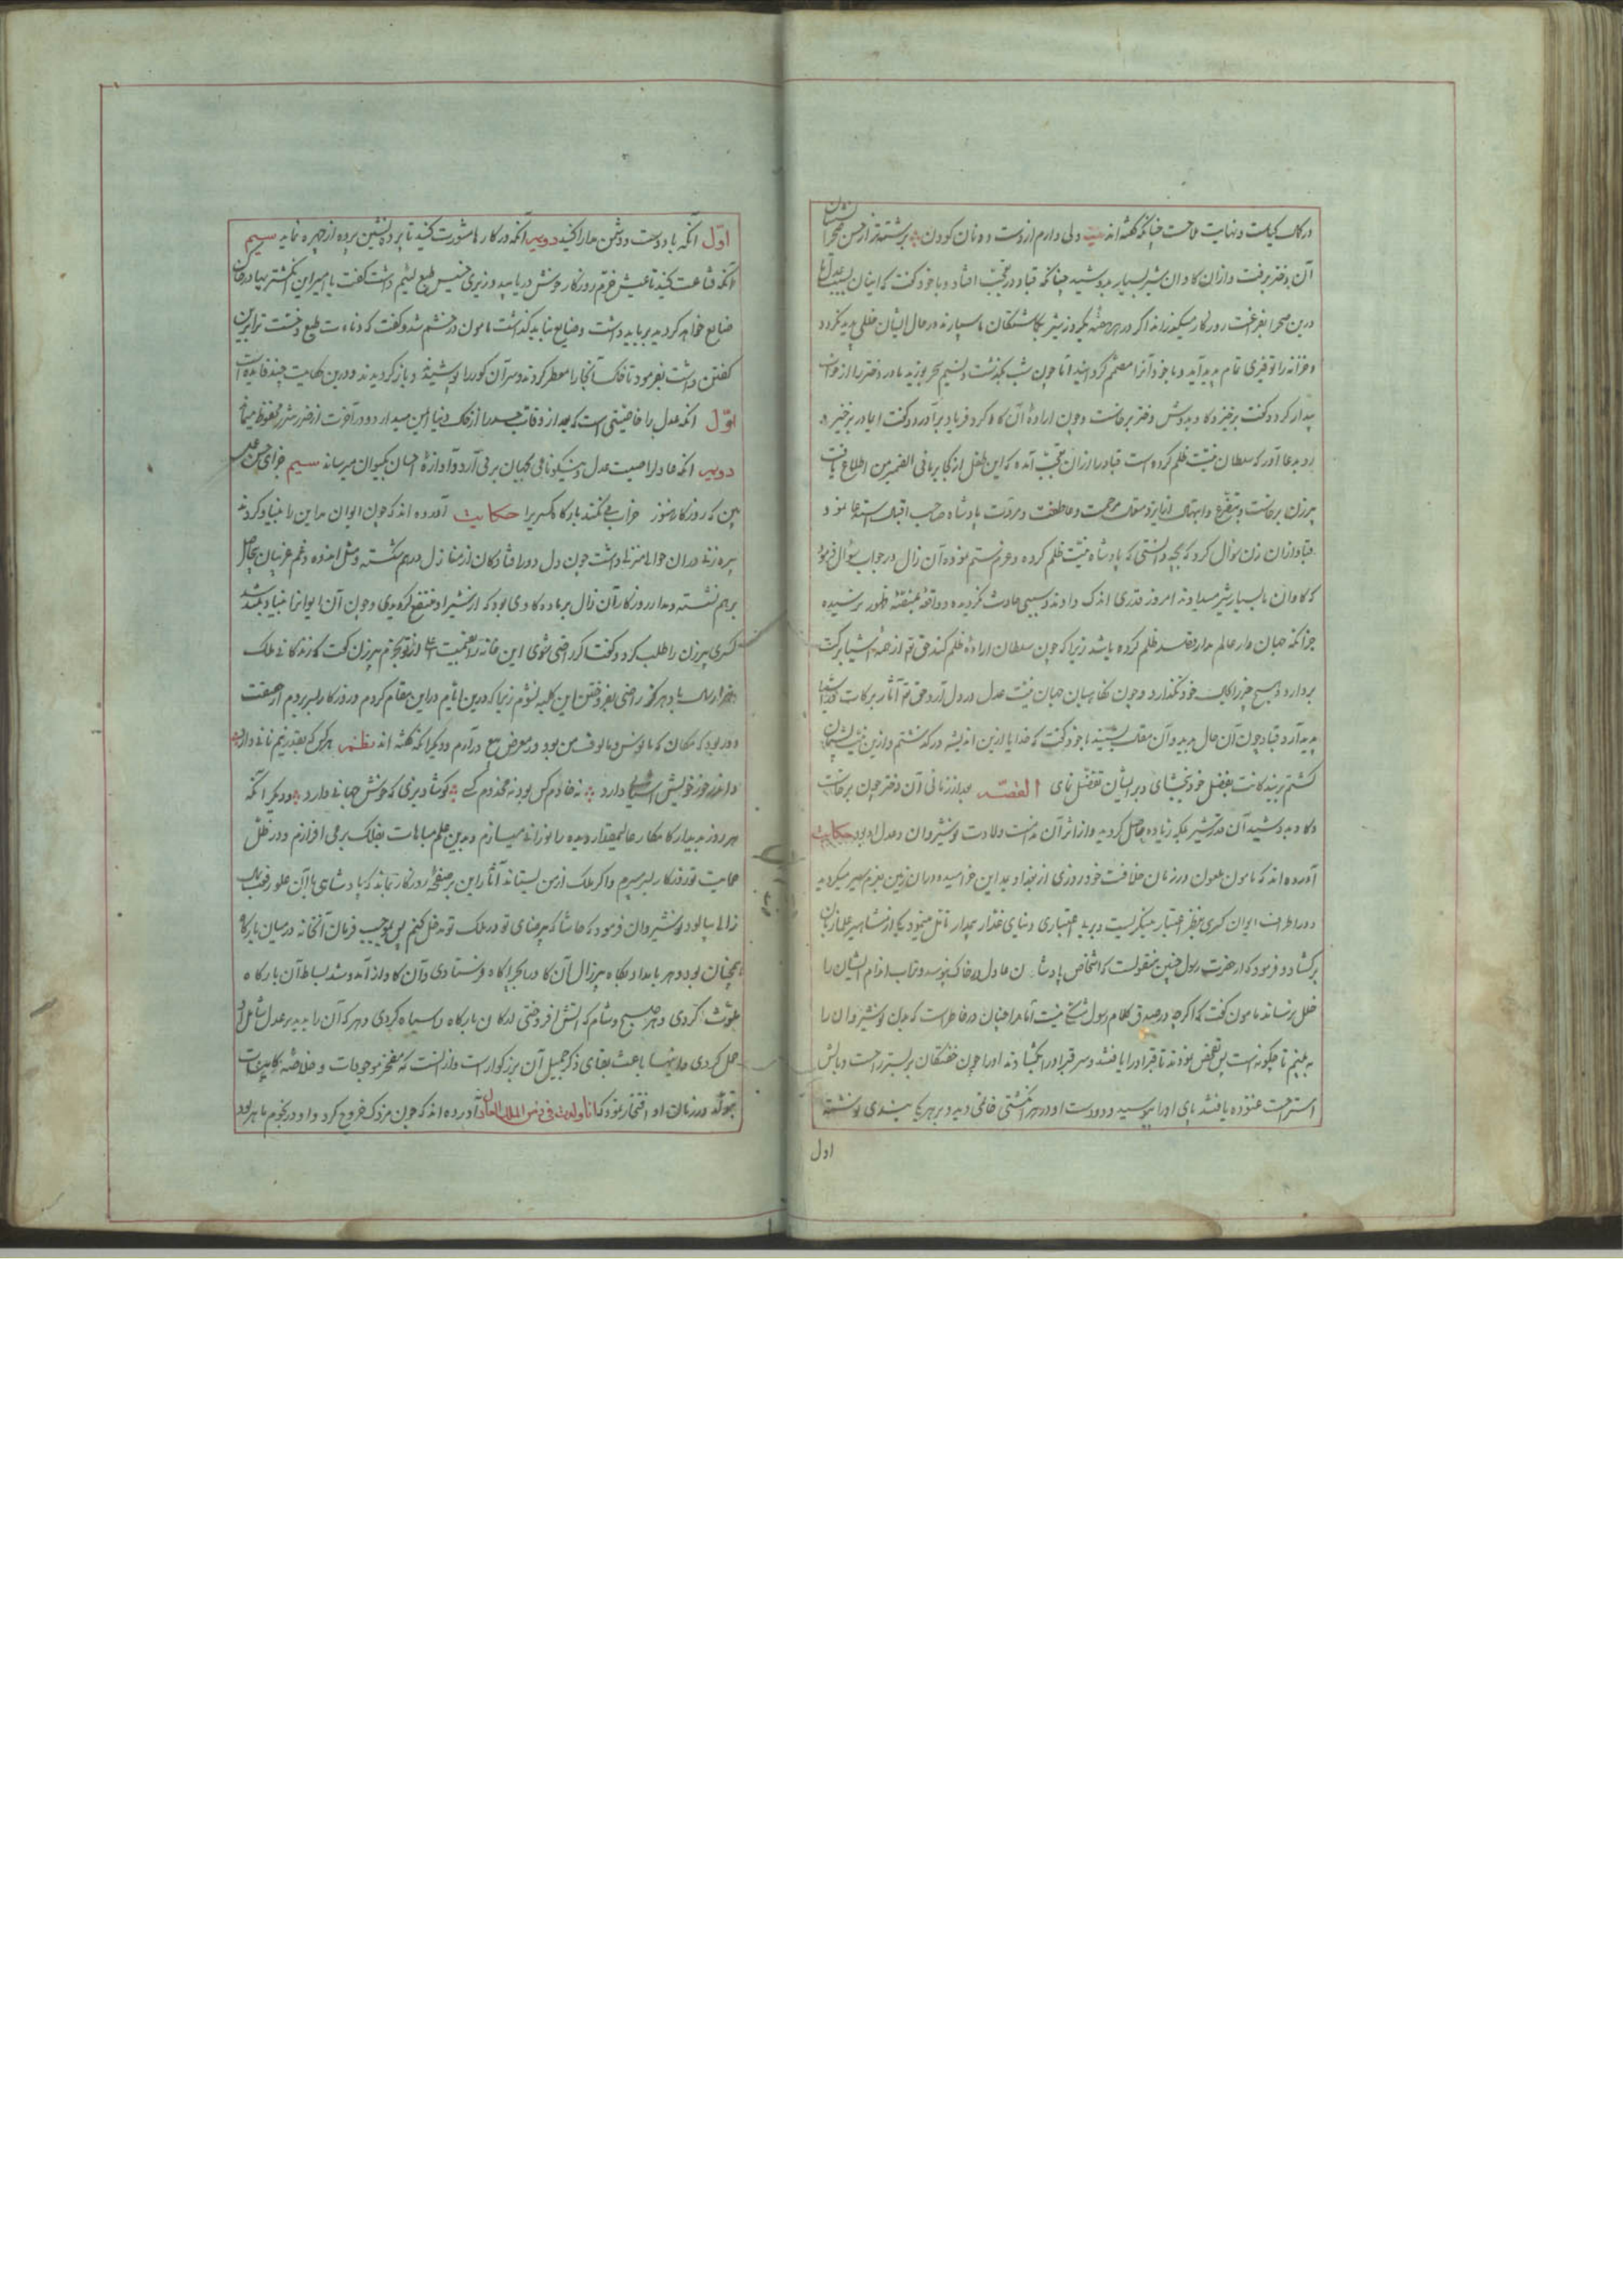 در کمال کیاست و نهایت ملاحت چنانکه گفته‌اند بیت دلی دارم از دست دونان کودن برشته‌تر از حسن صحرانشینان
آن دختر برفت و از آن کاوان شیر بسیار بدوشید چنانکه قباد در تعجب افتاد و با خود کفت که اینان بسبب عدل ما
درین صحرا بفراغت روزکار میکذرانند اکر در هر هفته یکروزه شیر بکماشتکان ما سپارند در حال ایشان خللی پدید نکردد
و خزانه را توفیری تمام پدید آید و با خود آنرا مصمم کردانید اما چون شب بکذشت و نسیم سحر بوزید مادر دختر را از خواب
بیدار کرد و کفت برخیز و کاو بدوش دختر برخاست و چون اراده آن کار کرد فریاد برآورد و کفت ای مادر برخیز و
رو بدعا آور که سلطان نیت ظلم کرده است قباد را از آن تعجب آمده که این طفل از کجا بر مافی الضمیر من اطلاع یافت
پیرزن برخاست و بتضرع و ابتهال از ایزد متعال مرحمت و عاطفت و مروت پادشاه صاحب اقبال استدعا نمود
قباد از آن زن سوال کرد که بچه دانستی که پادشاه نیت ظلم کرده و عزم ستم نموده آن زال در جواب سوال فرمود
که کاوان ما بسیار شیر میدادند امروز قدری اندک دادند و سببی حادث نکردیده و واقعه بمنصه ظهور نرسیده
جز آنکه جهان دار عالم مدار قصد ظلم کرده باشد زیرا که چون سلطان اراده ظلم کند حق تع از همه اشیا برکت
بردارد و هیچ چیز را بحال خود نکذارد و چون نکاهبان جهان نیت عدل در دل آرد حق تع آثار برکات در اشیا
پدید آرد قباد چون آن حال بدید و آن مقال بشنید با خود کفت که خدایا ازین اندیشه درکذشتم و ازین نیت پشیمان
کشتم بر بندکانت بفضل خود بخشای و بر ایشان تفضل نمای القصه بعد از زمانی آن دختر چون برخاست
و کاو بدوشید آن قدر شیر بلکه زیاده حاصل کردید و از اثر آن نیت ولادت نوشیروان و عدل او بود حکایت
آورده‌اند که مامون ملعون در زمان خلافت خود روزی از بغداد بمداین خرامید و در آن زمین بعزم سیر میکردید
و در اطراف ایوان کسری بنظر اعتبار مینکریست و بر بی اعتباری دنیای غدار مکار تامل مینمود یکی از مشاهیر علما زبان
برکشاد و فرمود که از حضرت رسول چنین منقولست که اشخاص پادشاهان عادل در خاک نپوسد و تراب اندام ایشان را
خلل نرساند مامون کفت که اکرچه در صدق کلام رسول شکی نیست اما مرا چنان در خاطر است که من نوشیروان را
به بینم تا چکونه است پس تفحص نمودند تا قبر او را یافتند و سر قبر او را بکشادند او را چون خفتکان بر بستر راحت و بالش
استراحت غنوده یافتند پای او را ببوسید و در دست او در هر انکشتی خاتمی دید و بر هر یک پندی نوشته
اول
اول آنکه با دوست و دشمن مدارا کنید دویم آنکه در کارها مشورت کنید تا پرده نشین پرده از چهره نماید سیم
آنکه قناعت کنید تا عیش خرم و روزکار خوش دریابید وزیری خسیس طبع لئیم داشت کفت یا امیر این انکشتریها در خاک
ضایع خواهد کردید بر باید داشت و ضایع نباید کذاشت مامون در خشم شد و کفت که دناءت طبع و خست ترا برین
کفتن داشت بفرمود تا خاک آنجا را معطر کردند و سر آن کور را پوشیدند و باز کردیدند و درین حکایت چند فایده است
اول آنکه عدل را خاصیتی است که بعد از وفات جسد را از خاک دنیا امن میدارد و در آخرت از ضرر شرر محفوظ مینماید
دویم آنکه عادل را صیت عدل و نیکو نامی بکیهان برمی آرد و آوازه احسان بکیوان میرساند سیم جزای حسن عمل
بین که روزکار هنوز خراب می نکند بارکاه کسری را حکایت آورده‌اند که چون ایوان مداین را بنیاد کردند
پیره زنی در آن حوالی منزلی داشت چون دل دور افتادکان از منازل در هم شکسته و مثل اندوه و غم غریبان بیحاصل
برهم نشسته و مدار روزکار آن زال بر ماده کاوی بود که از شیر او منتفع کردیدی و چون آن ایوان را بنیاد بلند شد
کسری پیرزن را طلب کرد و کفت اکر راضی شوی این خانه را بقیمت اعلی از تو بخرم پیرزن کفت که زندکانی ملک
هزار سال باد هرکز راضی بفروختن این کلبه نشوم زیرا که درین ایام در این مقام کردم و روزکار بسر بردم از حقیقت
دور بود که مکان که مانوس و مالوف من بود در معرض بیع درآرم و دیکر آنکه کفته‌اند نظم هر کس که بقدر نیم نانی دارد
و اندر خور خویش آشیانی دارد نه خادم کس بود نه مخدوم کسی کو شاد بزی که خوش جهانی دارد و دیکر آنکه
هر روز بدیدار کامکار عالیمقدار دیده را نورانی میسازم و بدین علم مباهات بفلک برمی افرازم و در ظل
حمایت تو روزکار بسر میبرم و اکر ملک از من بستاند آثار این بر صفحه روزکار بماند که پادشاهی با آن علو رفعت کلبه
زالی بیالود نوشیروان فرمود که حاشا که بی رضای تو در ملک تو دخل کنیم پس بموجب فرمان آنخانه در میان بارکاه
همچنان بود و هر بامداد پکاه پیرزال آن کاو را بچراکاه فرستادی و آن کاو از آمد و شد بساط آن بارکاه
ملوث کردی و هر صبح و شام که آتش افروختی ارکان بارکاه را سیاه کردی و هر که آن را بدید بر عدل شامل او
حمل کردی و اینها باعث بقای ذکر جمیل آن بزرکوار است و از آنست که مفخر موجودات و خلاصه کاینات
بتولد در زمان او افتخار نمود که انا ولدت فی زمن الملک العادل آورده‌اند که چون مزدک خروج کرد و او در نجوم ماهر بود